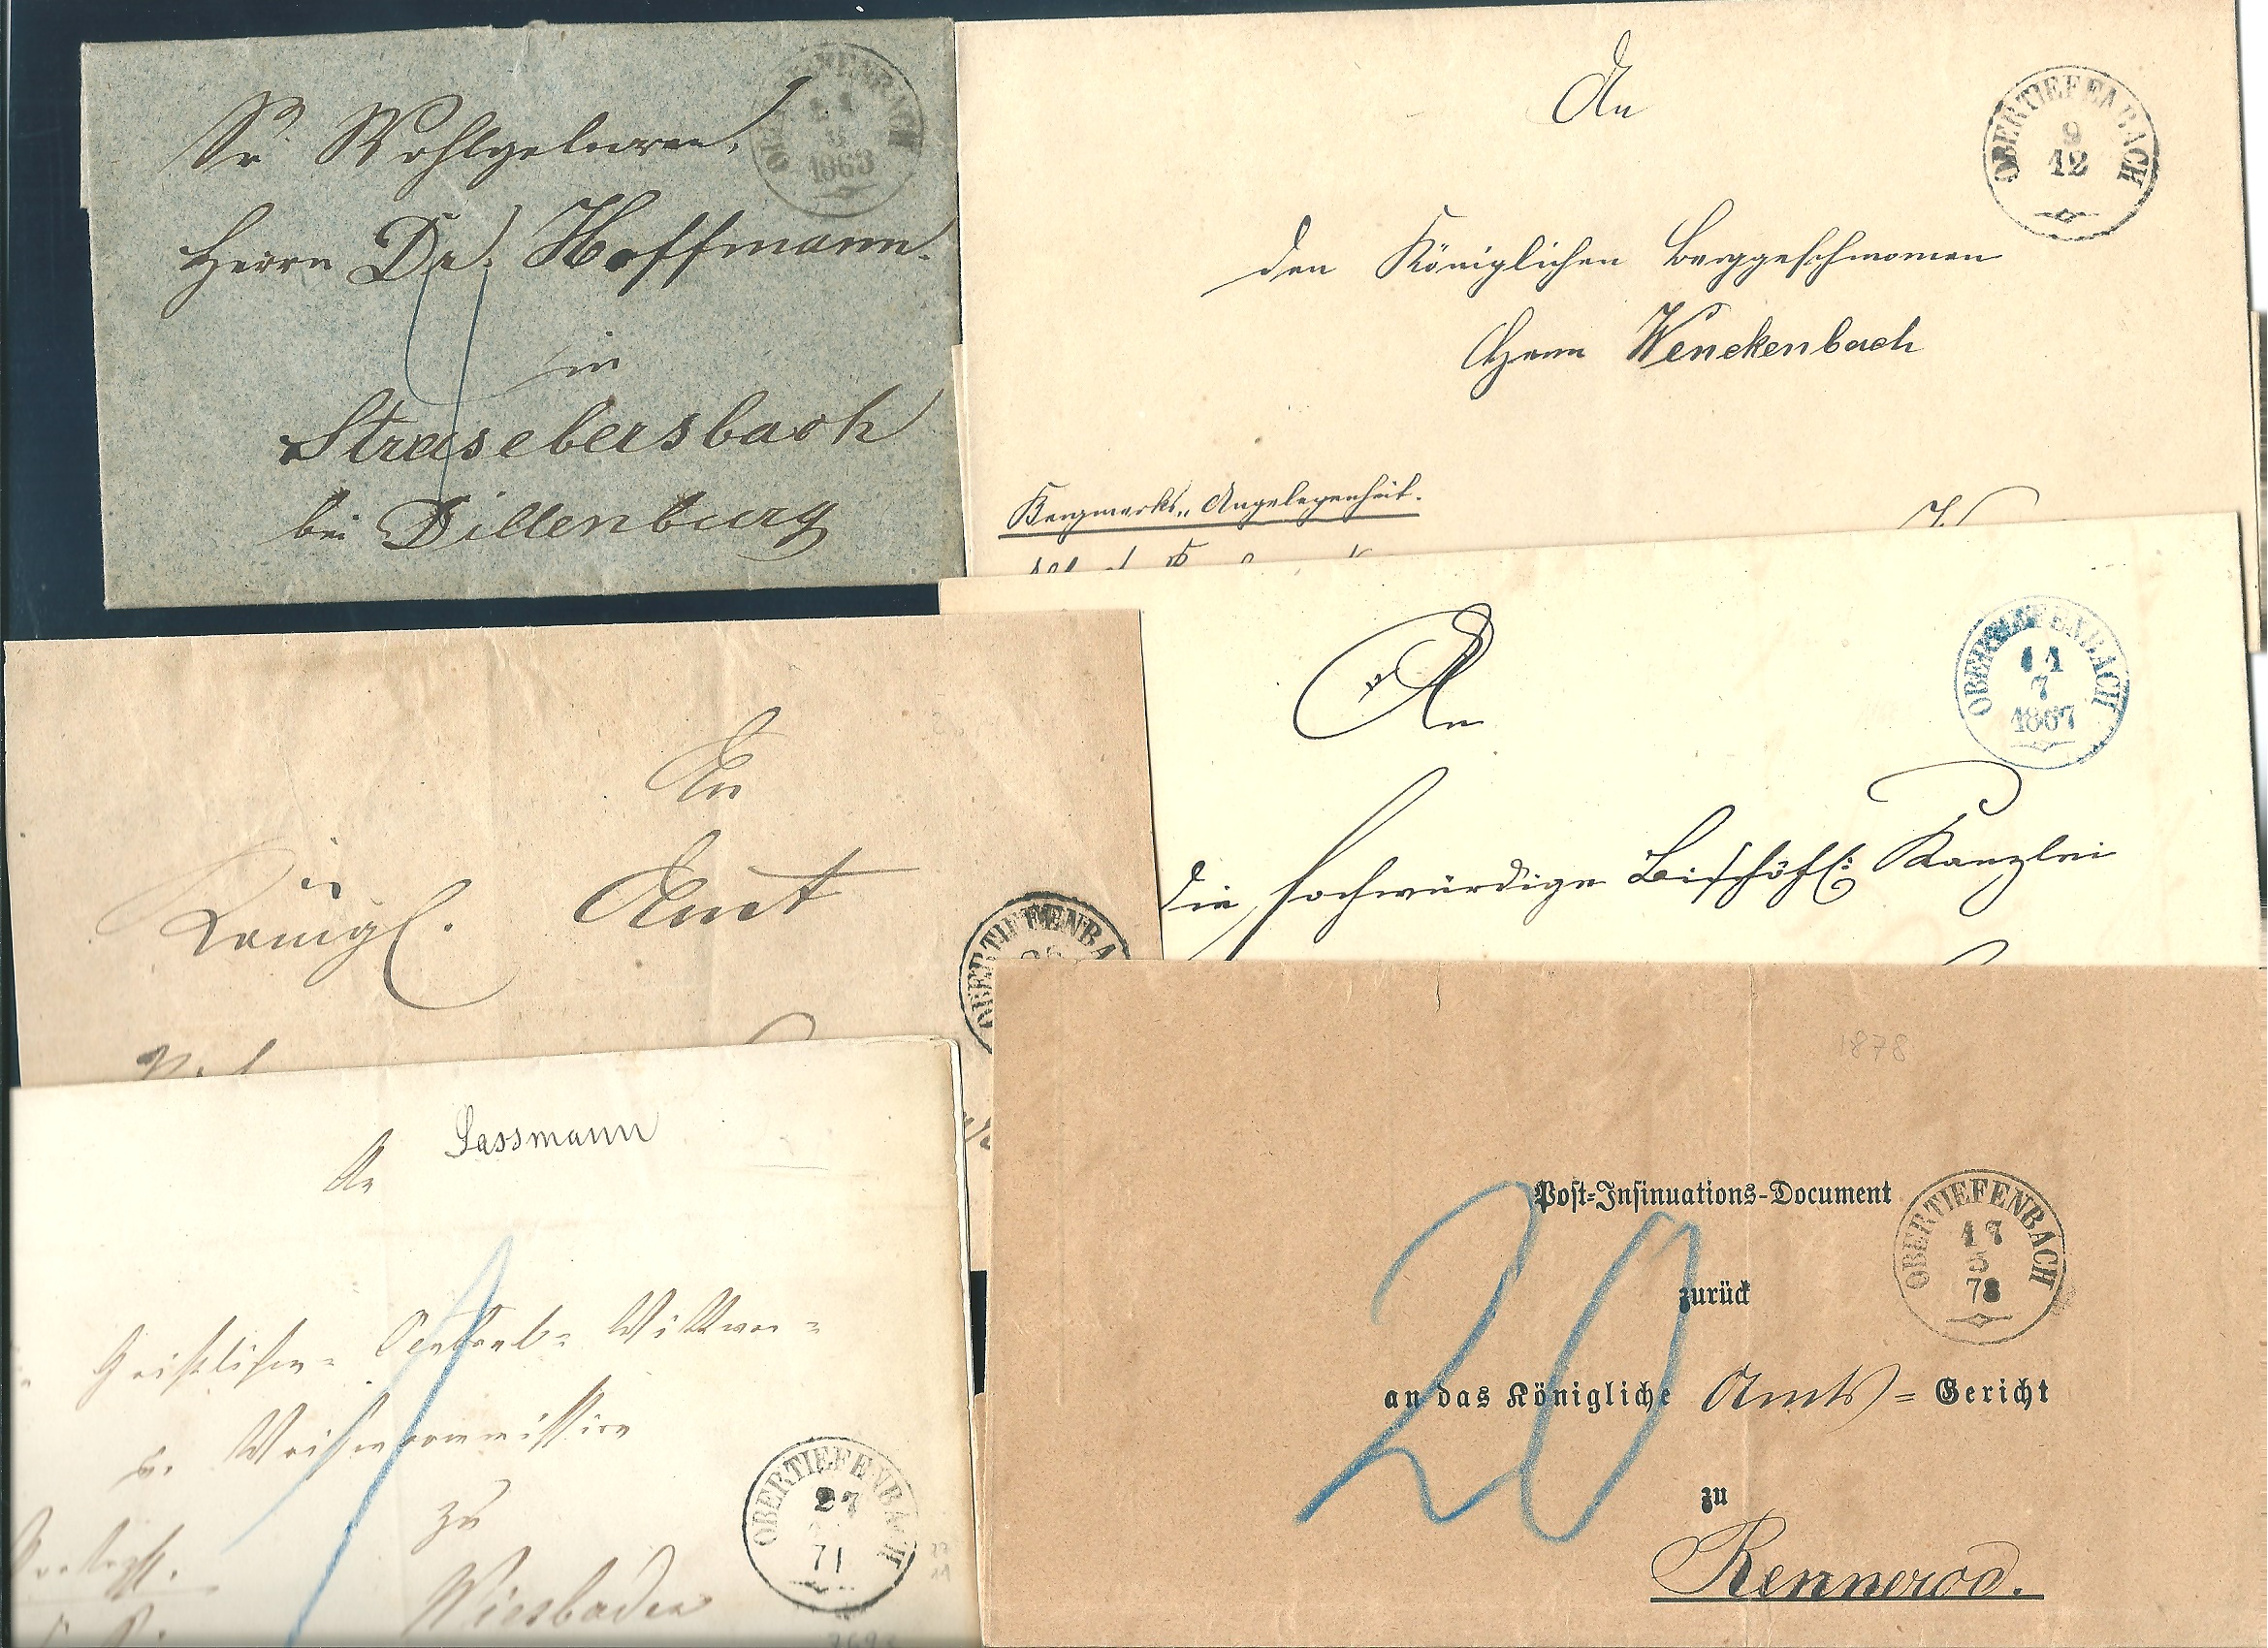 Sr Wohlgeboren,
Herrn Dr. Hoffmann.
in
Strasebersbach
bei Dillenburg
1863
An
den Königlichen Berggeschwornen
Herrn Wenckenbach
Bergwerks-Angelegenheit.
OBERTIEFENBACH
9
12
An
die hochwürdige Bischöfl: Kanzlei
OBERTIEFENBACH
11
7
1867
An
Königl. Amt
OBERTIEFENBA
An
Sassmann
Geistlichen- Central- Wittwen-
u. Waisencommission
zu
Wiesbaden
OBERTIEFENBACH
27
71
1878
Post-Insinuations-Document
zurück
an das Königliche Amts-Gericht
zu
Rennerod.
20
OBERTIEFENBACH
17
5
78